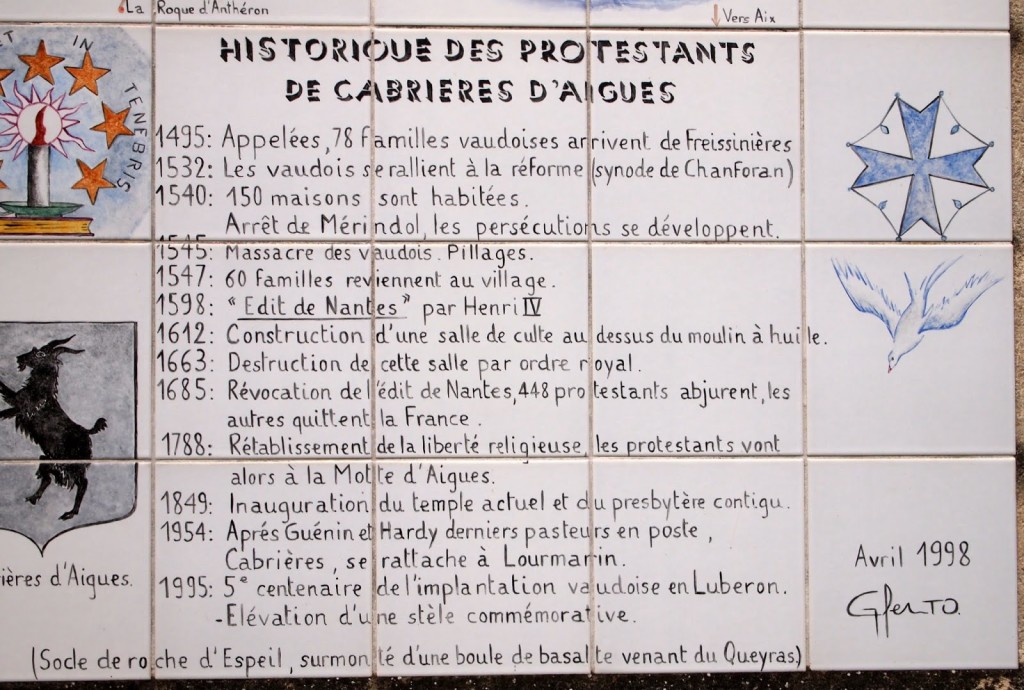 La Roque d'Anthéron
Vers Aix
ET IN TENEBRIS
HISTORIQUE DES PROTESTANTS
DE CABRIERES D'AIGUES
1495: Appelées, 78 familles vaudoises arrivent de Freissinières
1532: Les vaudois se rallient à la réforme (synode de Chanforan)
1540: 150 maisons sont habitées.
Arrêt de Mérindol, les persécutions se développent.
1545: Massacre des vaudois. Pillages.
1547: 60 familles reviennent au village.
1598: "Edit de Nantes" par Henri IV
1612: Construction d'une salle de culte au dessus du moulin à huile.
1663: Destruction de cette salle par ordre royal.
1685: Révocation de l'édit de Nantes, 448 protestants abjurent, les
autres quittent la France.
1788: Rétablissement de la liberté religieuse, les protestants vont
alors à la Motte d'Aigues.
1849: Inauguration du temple actuel et du presbytère contigu.
1954: Aprés Guénin et Hardy derniers pasteurs en poste,
Cabrières, se rattache à Lourmarin.
1995: 5e centenaire de l'implantation vaudoise en Luberon.
-Elévation d'une stèle commémorative.
(Socle de roche d'Espeil, surmonté d'une boule de basalte venant du Queyras)
ières d'Aigues.
Avril 1998